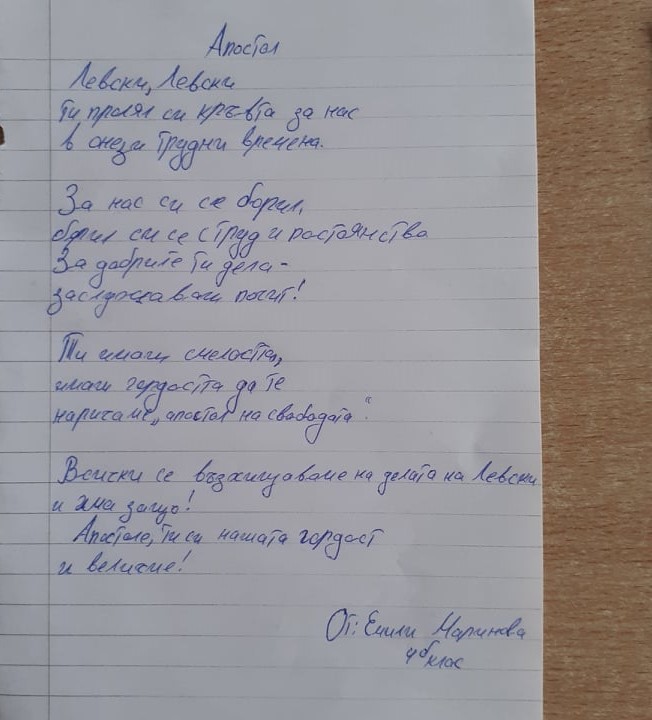 Апостол
Левски, Левски
ти пролял си кръвта за нас
в онези трудни времена.
За нас си се борил,
борил си се с труд и постоянства
За добрите ти дела -
заслужаваш почит!
Ти имаш смелостта,
имаш гордостта да те
наричаме „апостол на свободата“
Всички се възхищаваме на делата на Левски
и има защо!
Апостоле, ти си нашата гордост
и величие!
От: Емили Маринова
4б клас